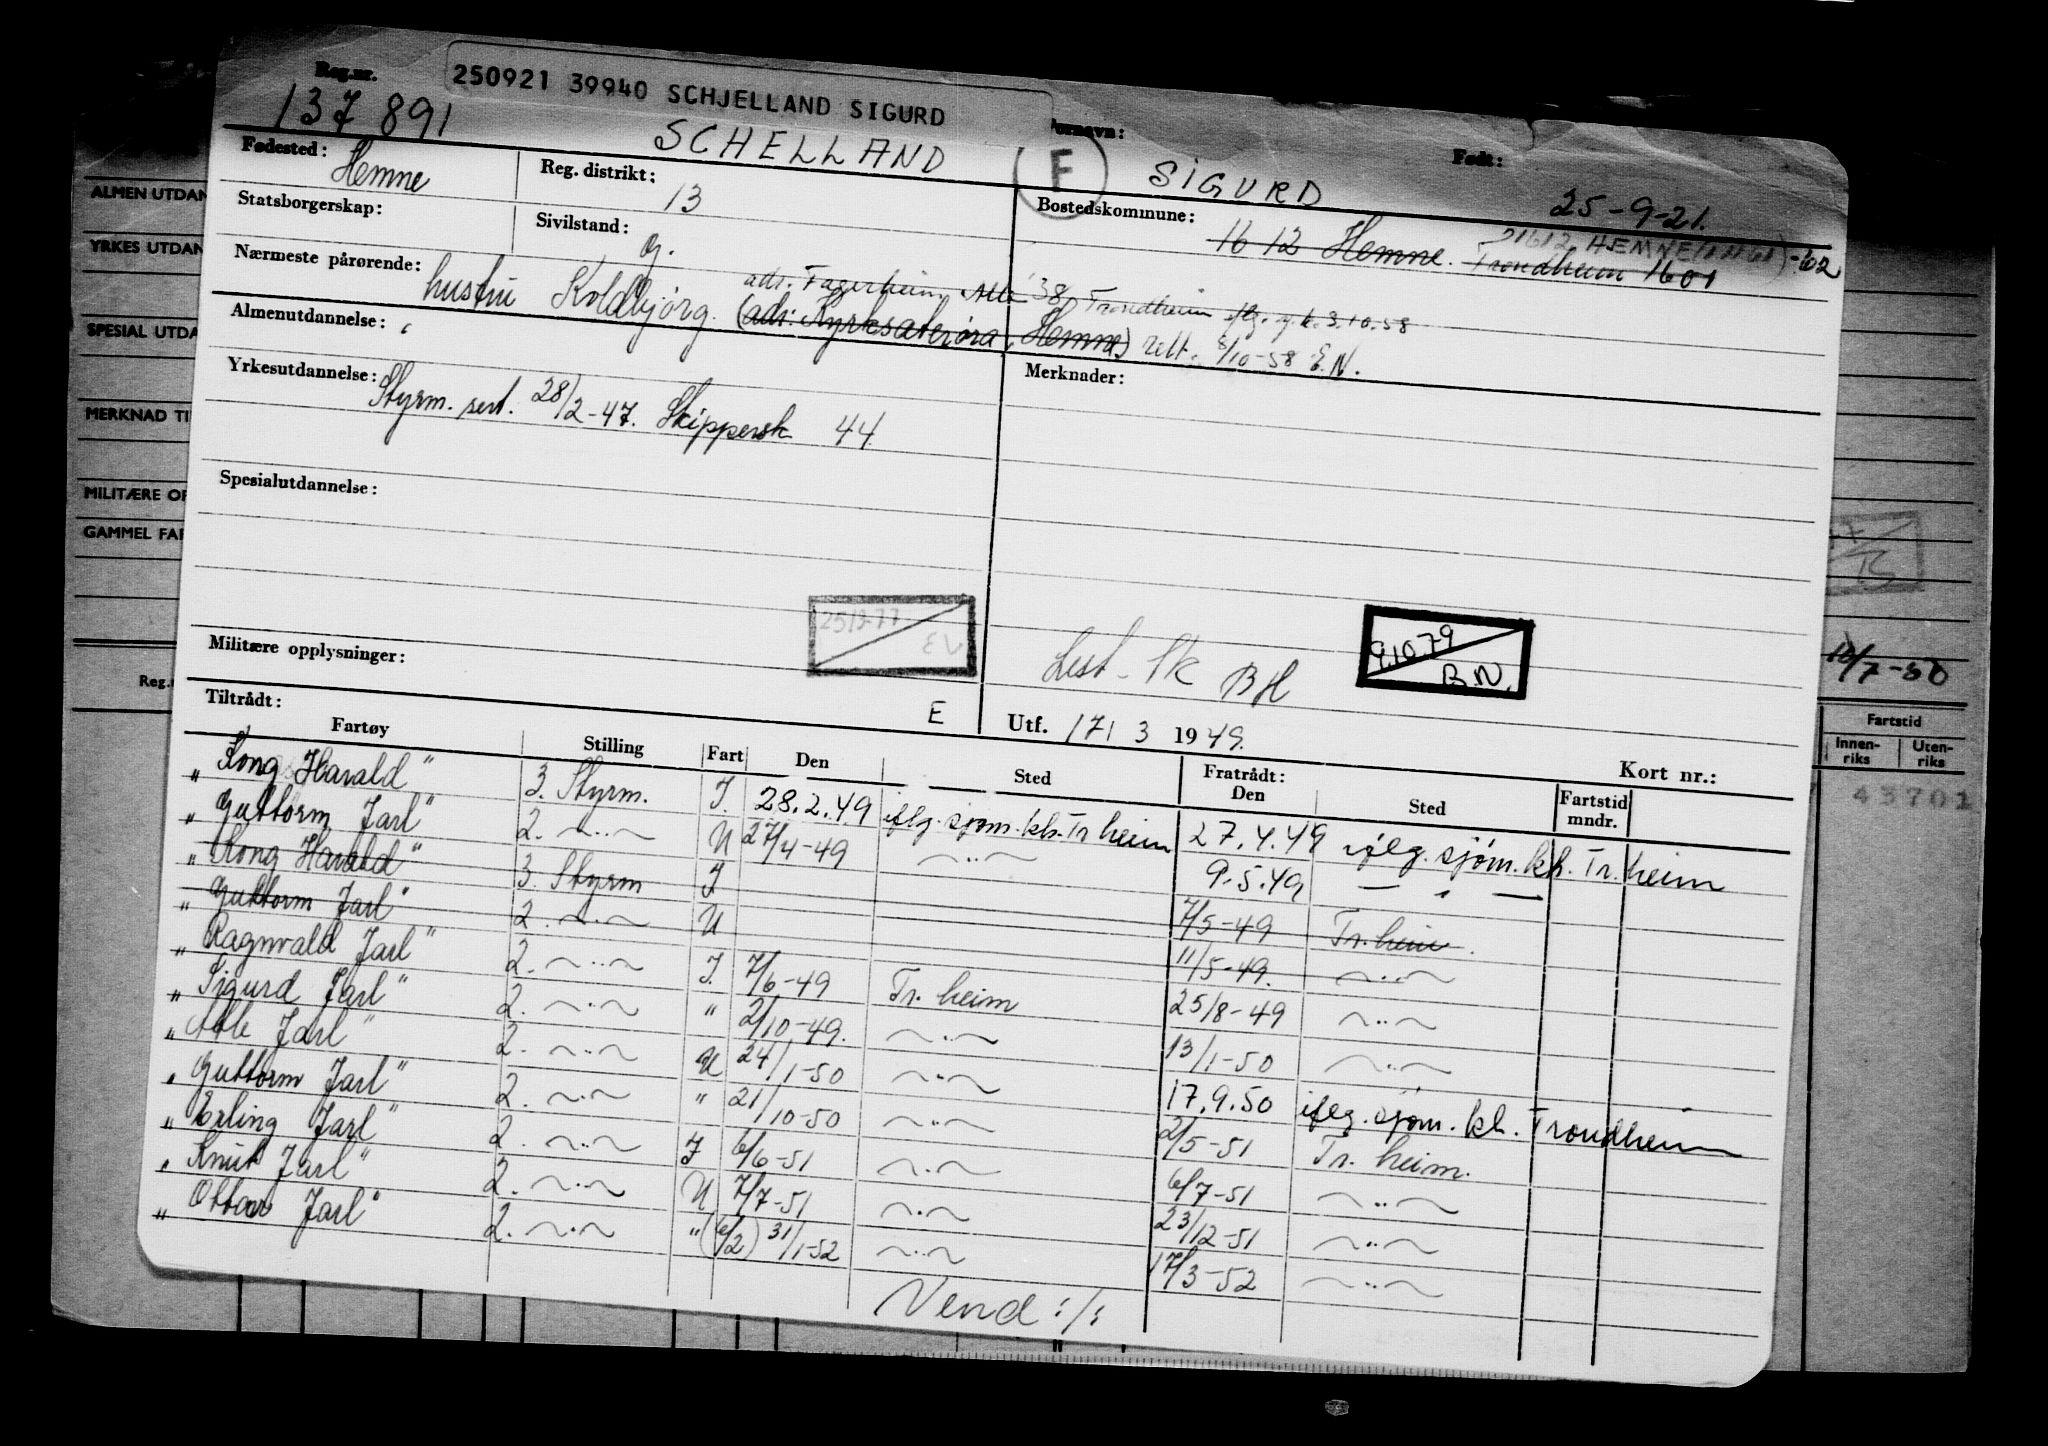 Reg.nr.
137 891
250921 39940 SCHJELLAND SIGURD
SCHELLAND
Fornavn:
F
SIGURD
Født:
25-9-21.
Fødested:
Hemne
Reg. distrikt:
13
Bostedskommune:
1612 Hemne. Trondheim 1601
1612 HEMNE
Statsborgerskap:
Sivilstand:
g.
Nærmeste pårørende:
hustru Koldbjørg.
adr. Fagerheim Alle 38, Trondheim iflg. 3.10.58
(adr: Kyrksæterøra, Hemne) rett. 8/10-58 E.N.
Almenutdannelse:
Yrkesutdannelse:
Styrm. sert. 28/2-47. Skippersk 44.
Merknader:
Spesialutdannelse:
Militære opplysninger:
Lest. Sk BH
9.10.79
B.N.
Tiltrådt:
E
Utf. 17/3 1949.
Kort nr.:
Fartøy Stilling Fart Den Sted Fratrådt: Den Sted Fartstid mndr.
"Kong Harald" 3. Styrm. I. 28.2.49 iflg. sjøm.kh. Tr heim 27.4.49 iflg. sjøm.kh. Tr. heim
"Guttorm Jarl" 2. —"— U 27/4-49 —"— 9.5.49 — " —
"Kong Harald" 3. Styrm I 7/5-49 Tr. heim.
"Guttorm Jarl" 2. —"— U 11/5-49. —"—
"Ragnvald Jarl" 2. —"— I. 7/6-49 Tr. heim 25/8-49 —"—
"Sigurd Jarl" 2. —"— " 2/10-49. —"— 13/1-50 —"—
"Atle Jarl" 2. —"— U 24/1-50 —"— 17.9.50 iflg. sjøm.kh. Trondheim
"Guttorm Jarl" 2. —"— " 21/10-50 —"— 2/5-51 Tr. heim.
"Erling Jarl" 2. —"— I 6/6-51 —"— 6/7-51 —"—
"Knut Jarl" 2. —"— U 7/7-51 —"— 23/12-51 —"—
"Ottar Jarl" 2. —"— " (6/2) 31/1-52 —"— 17/3-52 —"—
Vend :/:
ALMEN UTDAN
YRKES UTDAN
SPESIAL UTDA
MERKNAD TI
MILITÆRE OP
GAMMEL FAR
Reg.
7-50
Fartstid
Innenriks
Utenriks
43701